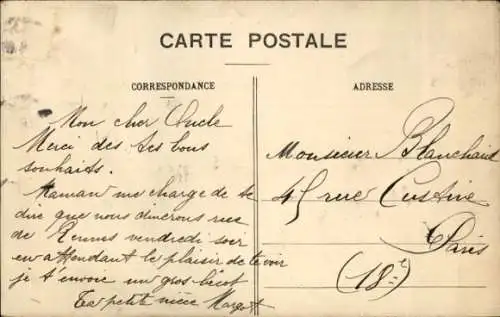 CARTE POSTALE
CORRESPONDANCE
ADRESSE
Mon cher Oncle
Merci des tes bons
souhaits.
Maman me charge de te
dire que nous dinerons rue
de Rennes vendredi soir
en attendant le plaisir de te voir
je t'envoie un gros bécot
Ta petite nièce Margot
Monsieur Blanchard
45 rue Custine
Paris
(18e)